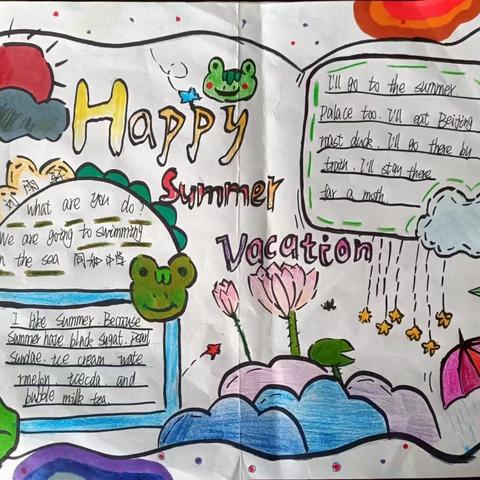 Happy
Summer
Vacation
I'll go to the summer
palace too. I'll eat Beijing
roast duck. I'll go there by
train. I'll stay there
for a moth
What are you do?
We are going to swimming
in the sea
I like summer. Because
summer have black sugar. pearl
sundae. Ice cream wate
rmelon. Icecola and
bubble milk tea.